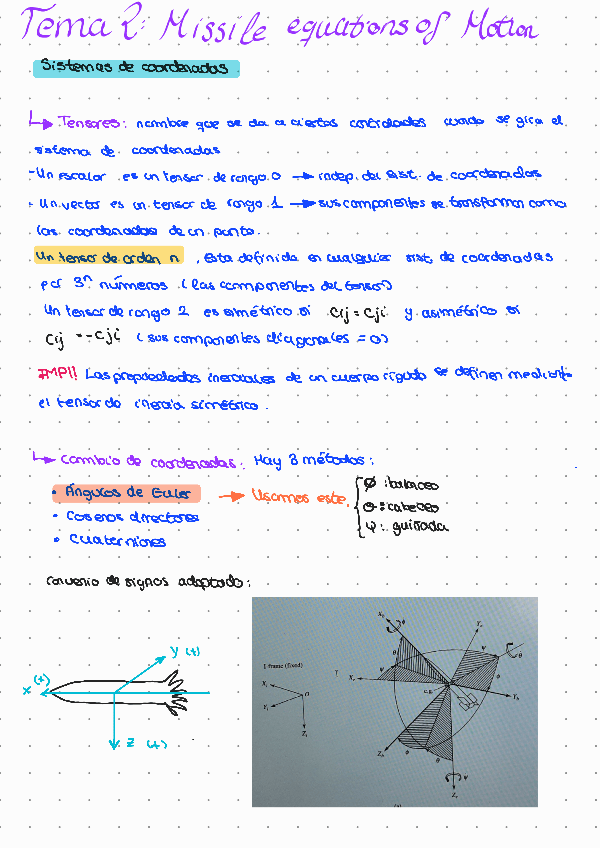 Tema 2: Missile equations of Motion
Sistemas de coordenadas
Tensores: nombre que se da a ciertas cantidades cuando se gira el
sistema de coordenadas
- Un escalar es un tensor de rango 0 → indep. del sist. de coordenadas
- Un vector es un tensor de rango 1 → sus componentes se transforman como
las coordenadas de un punto.
Un tensor de orden n, esta definida en cualquier sist. de coordenadas
por 3ⁿ números. (las componentes del tensor)
Un tensor de rango 2 es simétrico si Cij = Cji y asimétrico si
Cij = -Cji (sus componentes diagonales = 0)
IMP!! Las propiedades inerciales de un cuerpo rígido se definen mediante
el tensor de inercia simétrico.
Cambio de coordenadas: Hay 3 métodos:
• Ángulos de Euler → Usamos este.
Ø : balanceo
θ : cabeceo
ψ : guiñada
• Cosenos directores
• Cuaterniones
Convenio de signos adaptado:
y (t)
x (t)
z (t)
I frame (fixed)